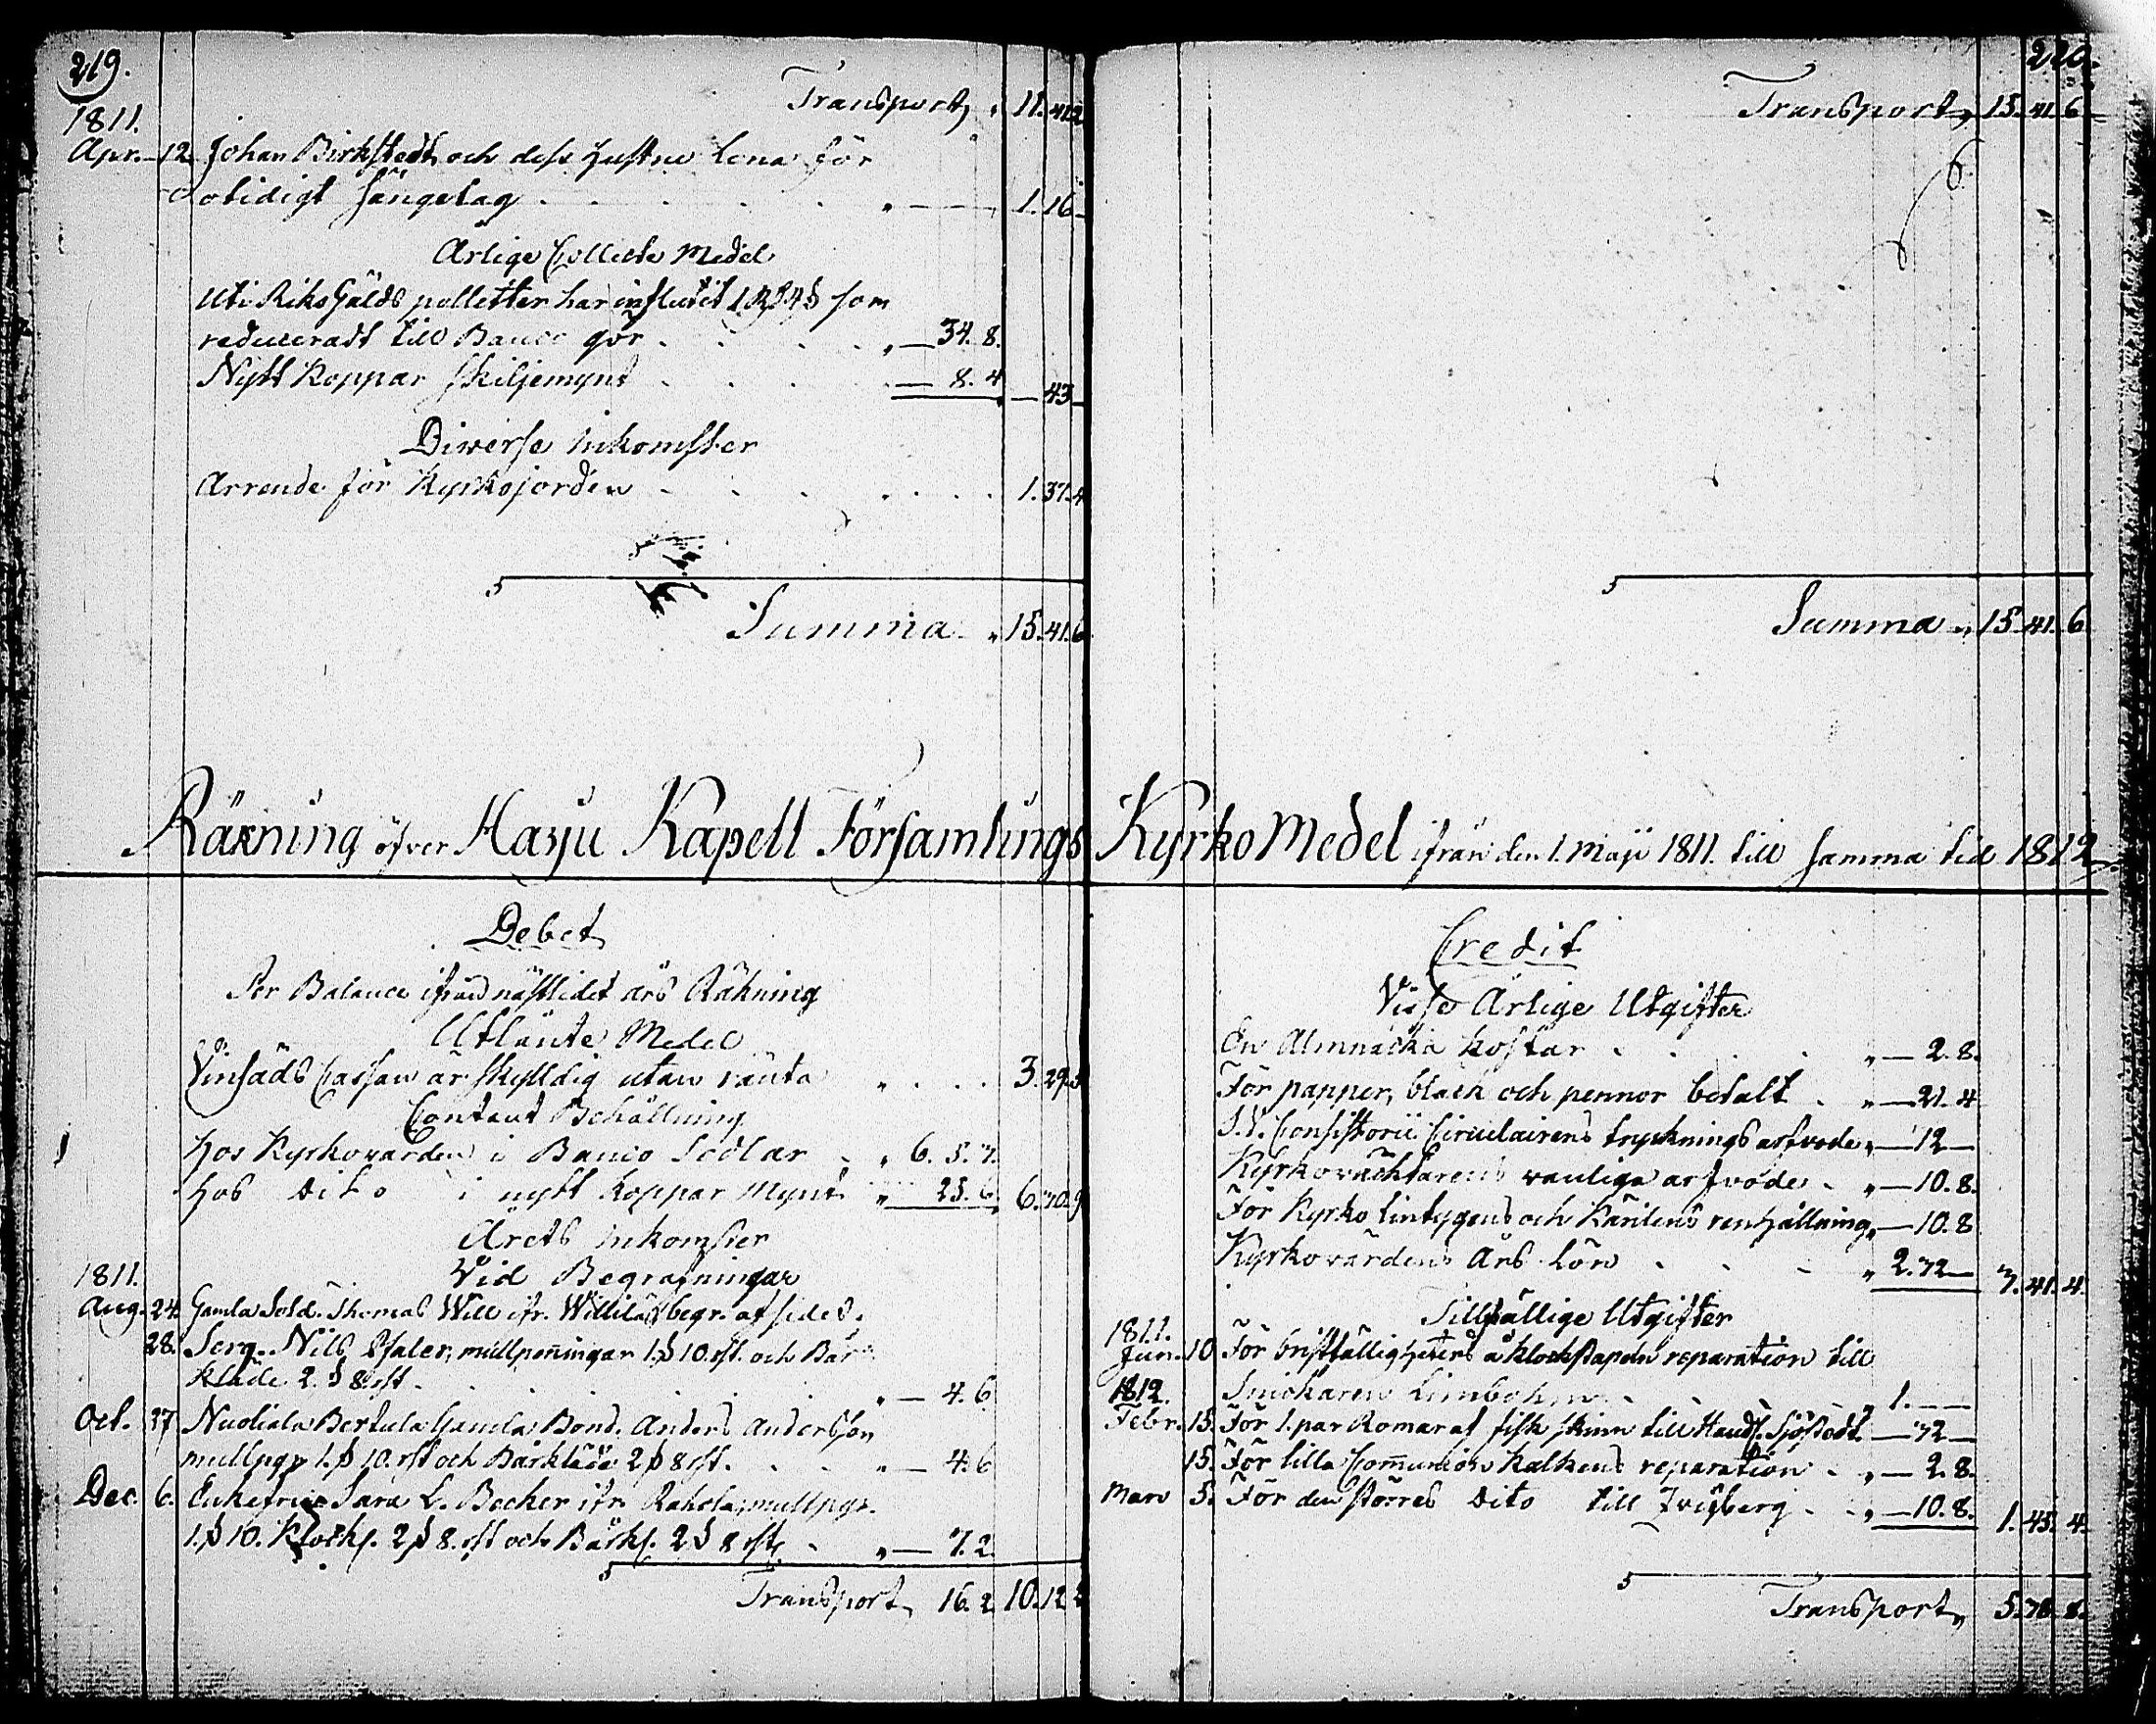 219.
Transport, 11. 41. 2
1811.
Apr. 12. Johan Birkstedt och dess Hustru Lena för
otidigt sängelag . . . . 1. 16. —
Årlige Collecte Medel
Uti Riks Gälds polletter har influtit som
reduceradt till Banco gör . . . 34. 8.
Nytt Koppar skiljemynt . . . 8. 4 — 43 —
Diverse Inkomster
Arrende för Kyrkojorden . . . . 1. 37. 4
Summa 15. 41. 6
Räkning öfver Harju Kapell Församlings
Debet
Per Balance ifrån nästlidet års Räkning
Utlänte Medel
Vinsäds Cassan är skylldig utan ränta . . . 3. 29.
Contant Behållning
Hos Kyrkovärden i Banco Sedlar . „ 6. 5. 7.
Hos dito i nytt Koppar Mynt „ 25. 6. 6.
Årets Inkomster
1811. Vid Begrafningar
Aug. 24. Gamla Sold. Thomas Will ifr. Willilä begr. afsides.
28. Serg. Nils mullpenningar 1 ß 10. rst. och Bår
kläde 2. ß 8 rst. . . . . „ — 4. 6
Oct. 27 Nuoliala Bertula Gamla Bond. Anders Andersson
mullpgr 1. ß 10. rst och Bårkläde 2 ß 8 rst. . . „ — 4. 6
Dec. 6. Enkefru Sara L. Becker ifr. mullpgr.
1. ß 10. Klockf. 2 ß 8. rst och Bårkl. 2 ß 8 rst. . „ — 7. 2.
Transport, 16. 2 10. 12.
220.
Transport, 15. 41. 6
Summa „ 15. 41. 6
Kyrko Medel ifrån den 1. Maji 1811. till samma tid 1812
Credit
Visse Årlige Utgifter
En Almnacka kostar . . . . „ — 2. 8.
För papper, bläck och pennor betalt . „ — 21. 4
Consistorii Circulairens tryknings arfvode „ — 12 —
Kyrkovächtarens vanliga arfvode . „ — 10. 8.
För Kyrko lintygens och Kärilens renhållning „ — 10. 8
Kyrkovärdens Års Lön . . . „ 2. 32 — 3. 41. 4.
Tillfällige Utgifter
1811.
Jun. 10 För bristfällighetens å klockstapeln reparation till
1812. Snickaren . . . „ 1. — —
Febr. 15. För 1. par af fisk skinn till Sjöstedt — 32 —
15. För lilla Communion Kalkens reparation . „ — 2. 8.
Mars 5. För den störres dito till . . „ — 10. 8. 1. 45. 4.
Transport, 5. 38. 8.